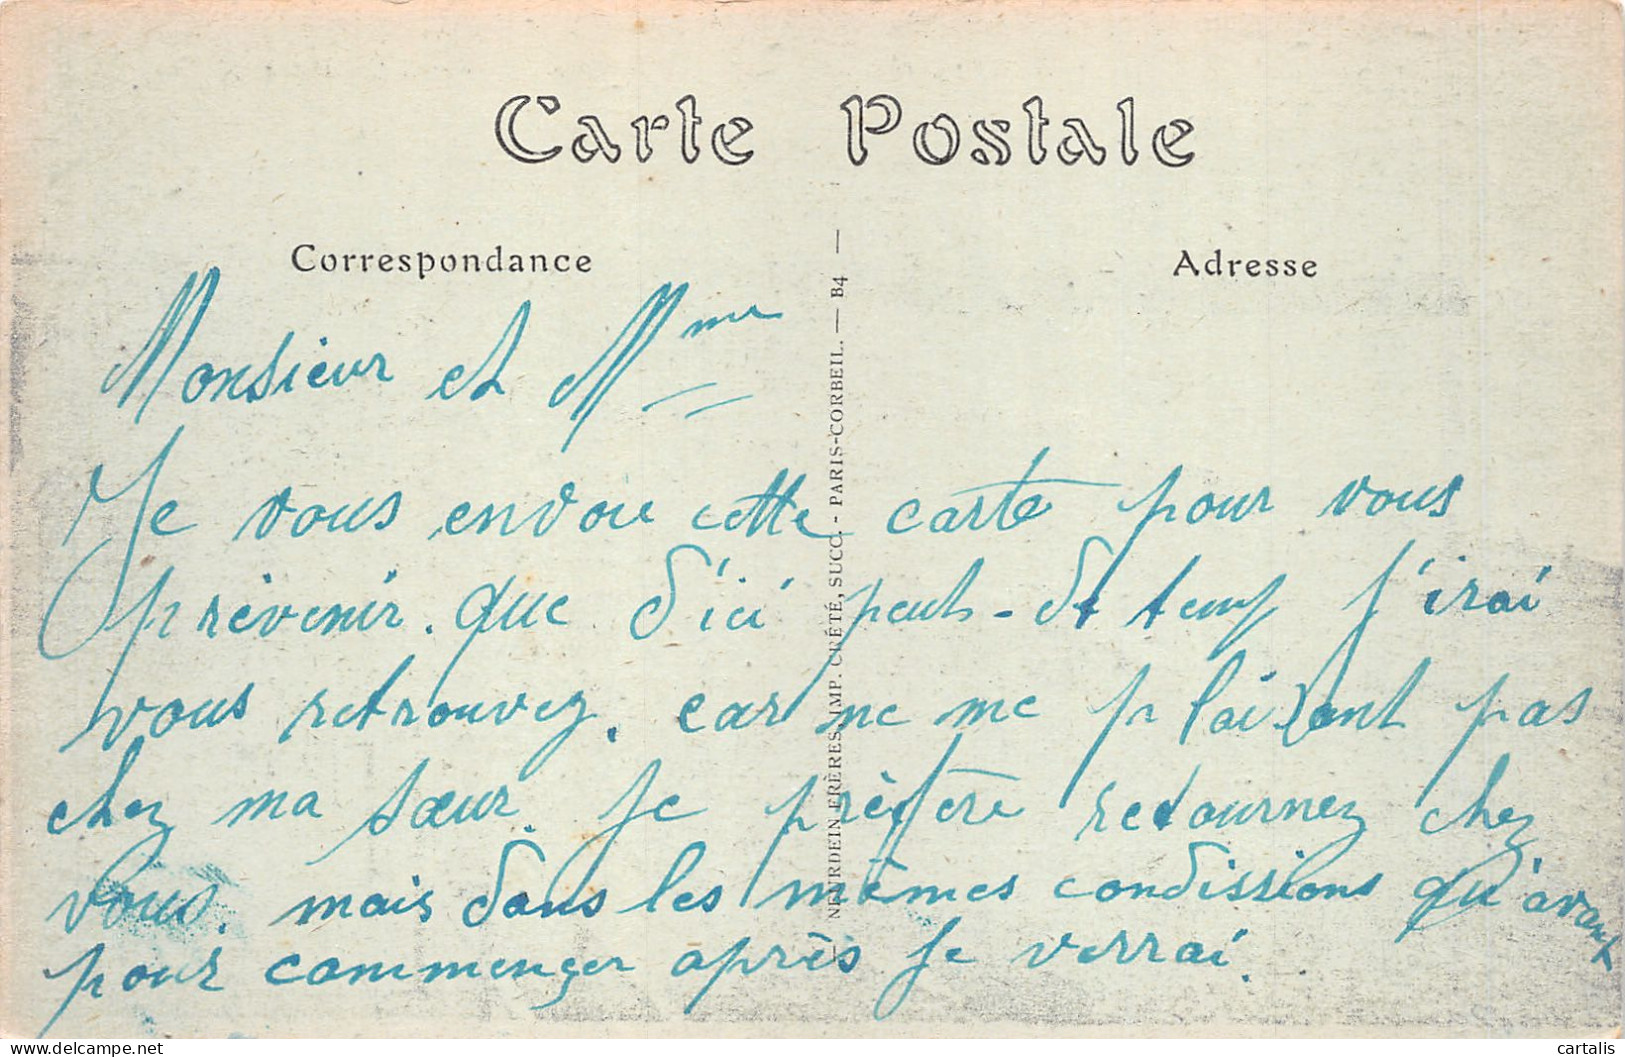 Carte Postale
Correspondance
Adresse
Monsieur et Mme
Je vous envoie cette carte pour vous
prévenir. que d'ici peut-dt temp j'irai
vous retrouvez, car me me plaisent pas
chez ma sœur. Je prèfère retournez chez
vous. mais dans les mêmes condissions qu'avant
pour commençer après je verrai.
— NEURDEIN FRÈRES, IMP. CRÉTÉ, SUCC. - PARIS-CORBEIL. — B4 —
cartalis